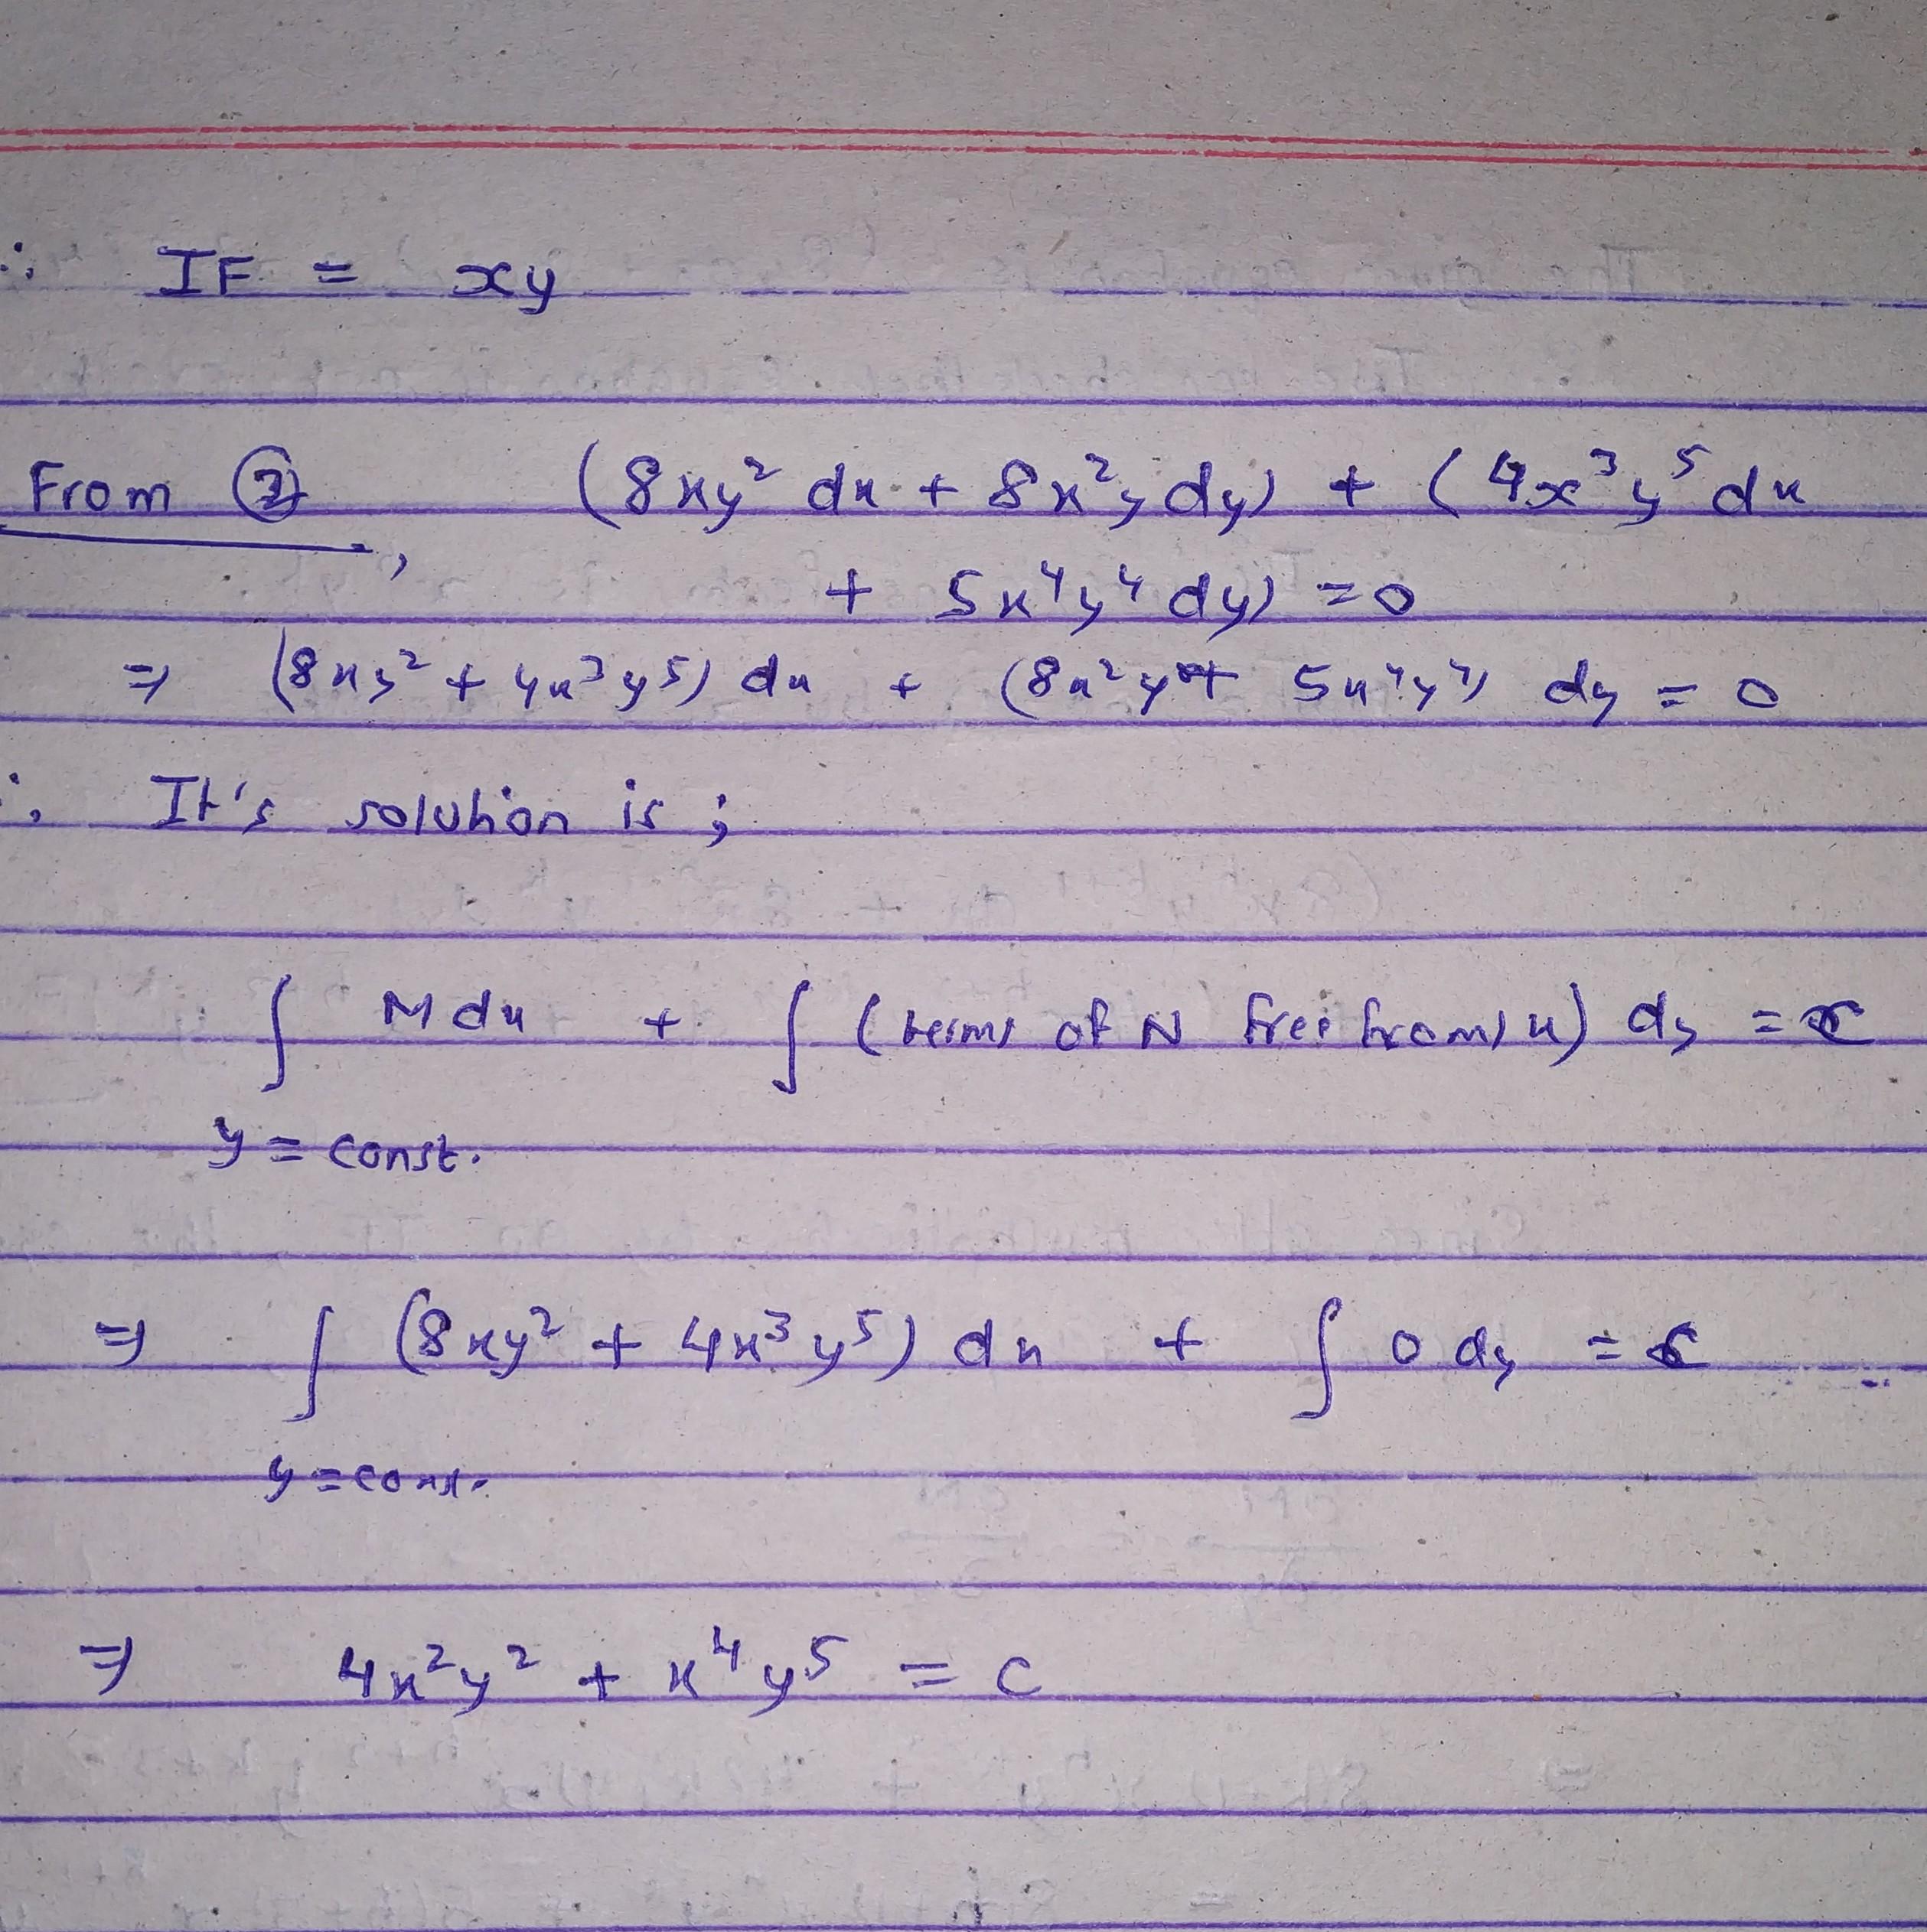 ∴ IF = xy
From ②, (8xy² dx + 8x²y dy) + (4x³y⁵ dx
+ 5x⁴y⁴ dy) = 0
⇒ (8xy² + 4x³y⁵) dx + (8x²y + 5x⁴y⁴) dy = 0
∴ It's solution is ;
∫ M dx + ∫ (terms of N free from x) dy = c
y = const.
⇒ ∫ (8xy² + 4x³y⁵) dx + ∫ 0 dy = c
y = const.
⇒ 4x²y² + x⁴y⁵ = c